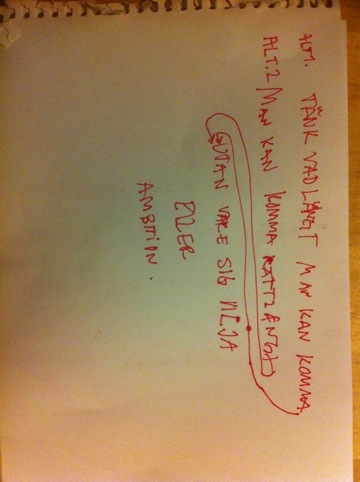 ALT 1. TÄNK VAD LÅNGT MAN KAN KOMMA
ALT.2/MAN KAN KOMMA RÄTT LÅNGT)
UTAN VARE SIG VILJA
ELLER
AMBITION.